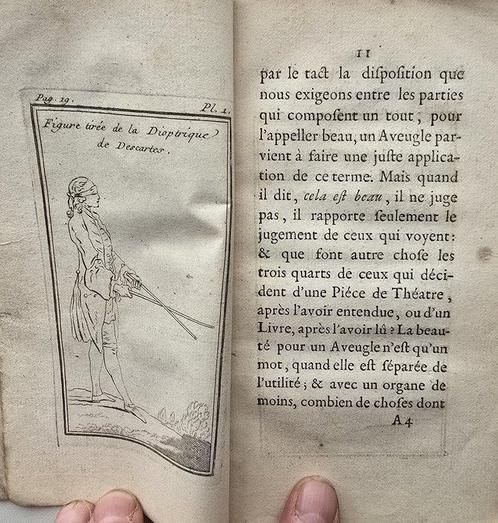 Pag. 19.
Pl. 1.
Figure tirée de la Dioptrique
de Descartes.
11
par le tact la diſpoſition que
nous exigeons entre les parties
qui compoſent un tout, pour
l'appeller beau, un Aveugle par-
vient à faire une juſte applica-
tion de ce terme. Mais quand
il dit, cela eſt beau, il ne juge
pas, il rapporte ſeulement le
jugement de ceux qui voyent:
& que font autre choſe les
trois quarts de ceux qui déci-
dent d'une Piéce de Théatre,
après l'avoir entendue, ou d'un
Livre, après l'avoir lû? La beau-
té pour un Aveugle n'eſt qu'un
mot, quand elle eſt ſéparée de
l'utilité; & avec un organe de
moins, combien de choſes dont
A4